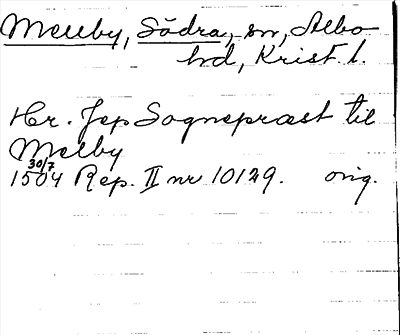 Mellby, Södra, sn, Albo
hd, Krist. l.
Hr. Jep Sognepræst til
Melby
30/7
1504 Rep. II nr 10129. orig.